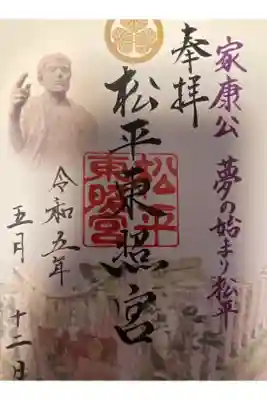 家康公 夢の始まり松平
奉拝
松平東照宮
松平
東照宮
令和五年
五月 十二日